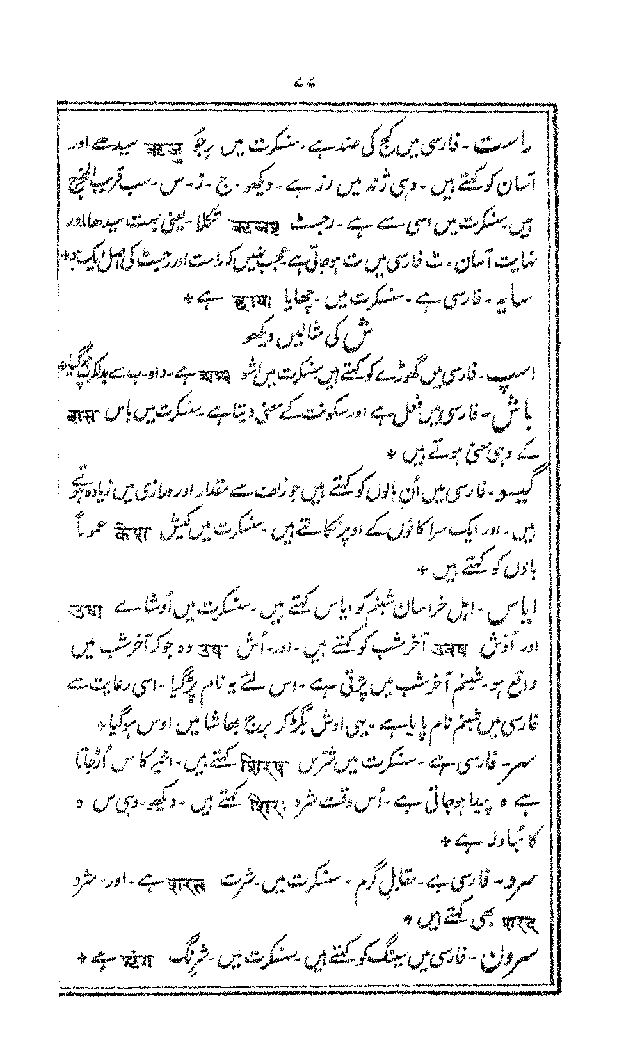 راست - فارسی میں کج کی ضد ہے - سنسکرت میں رِجُو ऋजु سیدھے اور
آسان کو کہتے ہیں - وہی ژند میں رز ہے - دیکھو - ج - ز - س - سب قریب المخرج
ہیں سنسکرت میں اسی سے ہے - رجِشٹ نکلا - یعنی بہت سیدھا اور
نہایت آسان - ٹ فارسی میں ت ہو جاتی ہے عجب نہیں کہ راست اور رجشٹ کی اصل ایک ہو *
سایہ - فارسی ہے - سنسکرت میں - چھایا छाया ہے *
ش کی مثالیں دیکھو
اسپ - فارسی میں گھوڑے کو کہتے ہیں سنسکرت میں اشو ہے - واو - ب سے بدلکر پ ہوگیا *
باش - فارسی میں فعل ہے اور سکونت کے معنی دیتا ہے - سنسکرت میں باس बास
کے وہی معنی ہوتے ہیں *
گیسو - فارسی میں اُن بالوں کو کہتے ہیں جو زلف سے مقدار اور درازی میں زیادہ ہوتے
ہیں - اور ایک سرا کانوں کے اوپر اٹکاتے ہیں - سنسکرت میں کیش केषा عموماً
بالوں کو کہتے ہیں *
ایاس - اہل خراسان شبنم کو ایاس کہتے ہیں - سنسکرت میں اُوشا سے उषा
اور اُوَش उवष آخر شب کو کہتے ہیں - اور - اُش उष وہ جو کہ آخر شب میں
واقع ہو - شبنم آخر شب میں پڑتی ہے - اس لئے یہ نام پڑگیا - اسی رعایت سے
فارسی میں شبنم نام پایا ہے - یہی اوش بگڑ کر برج بھاشا میں اوس ہوگیا *
سر - فارسی ہے - سنسکرت میں شِرَس शिरष کہتے ہیں - اخیر کا س اُڑ جاتا
ہے ہ پیدا ہو جاتی ہے - اُس وقت شرہ शिरः کہتے ہیں - دیکھو - وہی س ہ
کا تبادلہ ہے *
سرد - فارسی ہے - مقابل گرم - سنسکرت میں - شرت शरत ہے - اور - شرد
शरद بھی کہتے ہیں *
سرون - فارسی میں سینگ کو کہتے ہیں - سنسکرت میں - شرنگ ہے *